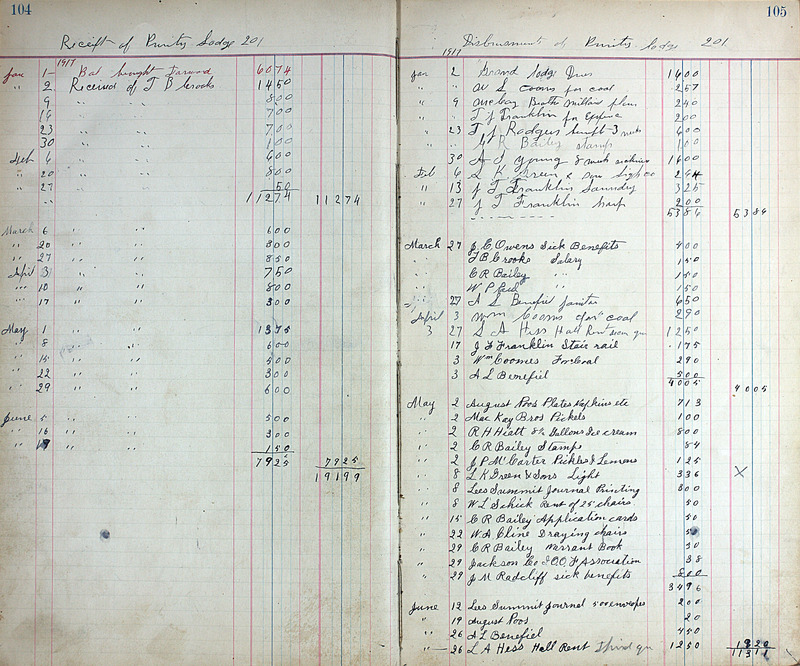 104
Receipt of Purity Lodge 201
1917
Jan 1 Bal brought Forward 6074
" 2 Received of J B Crooks 1450
9 " " 800
16 " " 700
23 " " 700
30 " " 100
Feb 6 " " 600
" 20 " " 800
" 27 " " 50
" 11274 11274
March 6 " " 600
" 20 " " 800
" 27 " " 850
April 3 " " 750
" 10 " " 800
" 17 " " 300
May 1 " " 1375
" 8 " " 600
" 15 " " 500
" 22 " " 300
" 29 " " 600
June 5 " " 500
" 16 " " 300
" " " 150
7925 7925
19199
105
Disbursments of Purity Lodge 201
1917
Jan 2 Grand Lodge Dues 1600
" " W L Cooms for coal 257
" 9 240
" " T J Franklin for Expence 200
" 23 T J Rodgers 600
" " C R Bailey stamps 100
30 A L Young 8 1600
Feb 6 L K Green & son light 264
" 13 J T Franklin Laundry 325
" 27 J T Franklin 200
5386 5386
March 27 J. C. Owens Sick Benefits 400
J B Crooks Salary 150
C R Bailey " " 150
W P 150
27 A L Benefiel Janitor 650
April 3 Wm Cooms for coal 290
3 27 L A Hess Hall Rent 1250
17 J F Franklin Stair rail 175
3 Wm Coomes For Coal 290
3 A L Benefiel 500
4005 4005
May 2 August Poos Plates Napkins etc 713
" 2 Mac Kay Bros Pickels 100
" 2 R H Hiatt 8¼ Gallons Ice cream 800
" 2 C R Bailey Stamps 84
" 2 J P McCarter Pickles & Lemons 125
" 8 L K Green & Sons Light 336 X
" 8 Lees Summit Journal Printing 800
" 8 W L Schick Rent of 25 chairs 50
" 15 C R Bailey Application cards 50
" 22 W A Cline Draying chairs 50
" 29 C R Bailey Warrant Book 50
" 29 Jackson Co I.O.O.F Association 38
" 29 J M Radcliff sick benefits 800
3496
June 12 Lees Summit Journal 500 envelopes 200
" 19 August Poos 20
" 26 A L Benefiel 450
" 26 L A Hess Hall Rent Third qu 1250 1920
11311